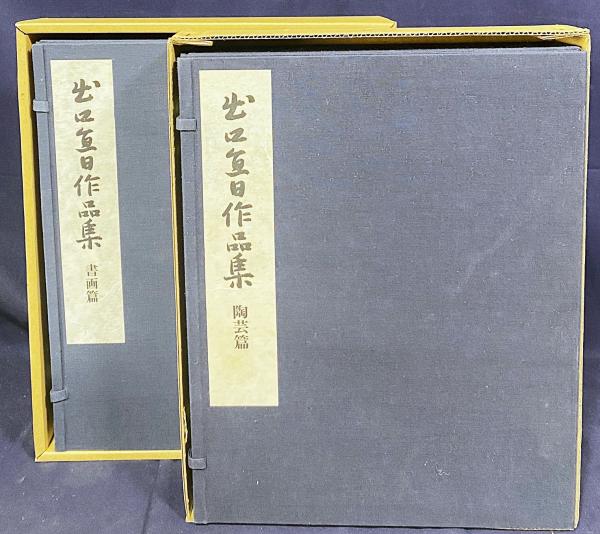 出口直日作品集
書画篇
出口直日作品集
陶芸篇